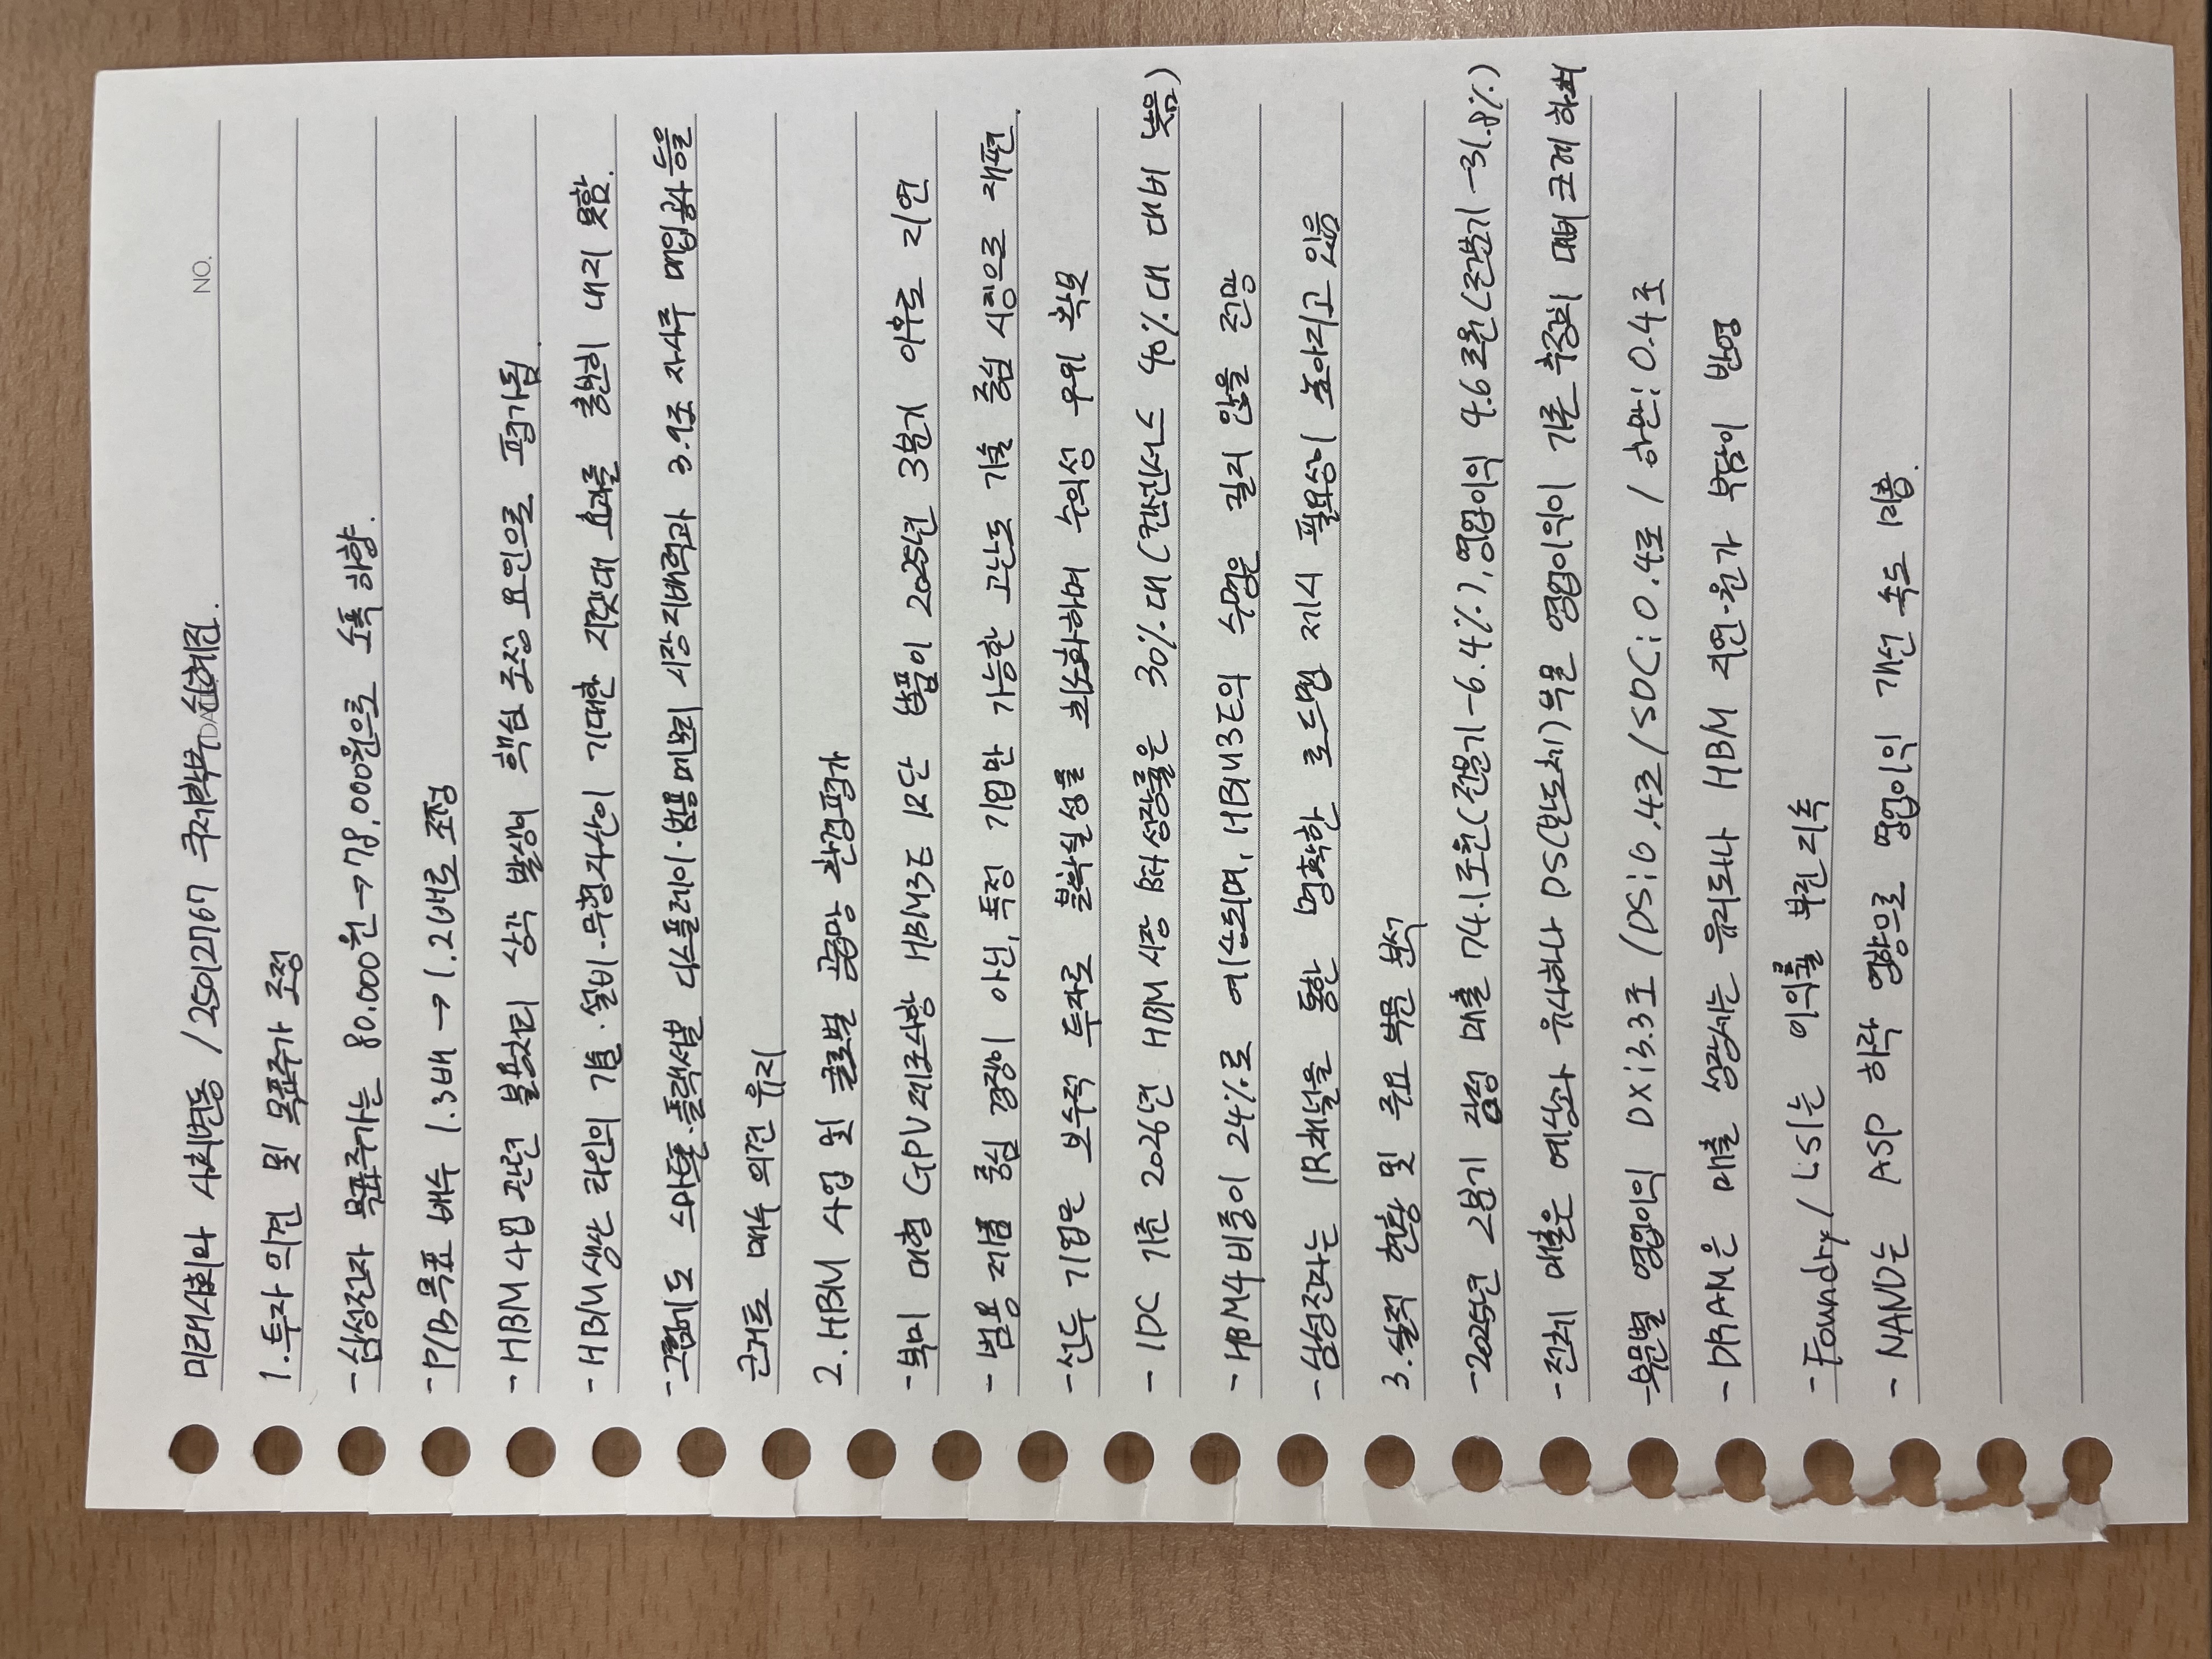 NO.
미래사회와 사회변동 / 25012767 국제학부 신예진.
1. 투자 의견 및 목표주가 조정
- 삼성전자 목표주가는 80.000원→78,000원으로 소폭 하향.
- P/B 목표 배수 1.3배 → 1.2배로 조정
- HBM 사업 관련 불용처리 상각 발생이 핵심 조정 요인으로 평가됨.
- HBM 생산 라인의 기술·설비·무형자산이 기대한 지렛대 효과를 충분히 내지 못함.
- 그럼에도 스마트폰·플랙서블 디스플레이·범용메모리 시장지배력과 3.9조 자사주 매입공과 등을
근거로 매수 의견 유지
2. HBM 사업 및 글로벌 공급망 환경평가
- 북미 대형 GPU제조사향 HBM3E 12단 납품이 2025년 3분기 이후로 지연
- 범용 제품 중심 경쟁이 아닌, 특정 기업만 가능한 고난도 기술 중심 시장으로 재편.
- 선두 기업은 보수적 투자로 불확실성을 최소화하며 수익성 우위 확보
- IDC 기준 2026년 HBM 시장 Bit 성장률은 30%대 (컨센서스 40%대 대비 낮음)
- HBM4 비중이 24%로 예상되며, HBM3E의 수명은 길지 않을 전망
- 삼성전자는 IR채널을 통한 명확한 로드맵 제시 필요성이 높아지고 있음
3. 실적 현황 및 주요 부문 분석
- 2025년 2분기 잠정 매출 74.1조원(전분기 -6.4%), 영업이익 4.6조원(전분기 -31.8%)
- 전체 매출은 예상과 유사하나 DS(반도체)부문 영업이익이 기존 추정치 대비 크게 하회
- 부문별 영업이익 DX:3.3조 / DS:0.4조 / SDC:0.4조 / 하만:0.4조
- DRAM은 매출 성장세는 유리하나 HBM 지연·원가 부담이 반영
- Foundry / LSI는 이익률 부진 지속
- NAND는 ASP 하락 영향으로 영업이익 개선 속도 더딤.